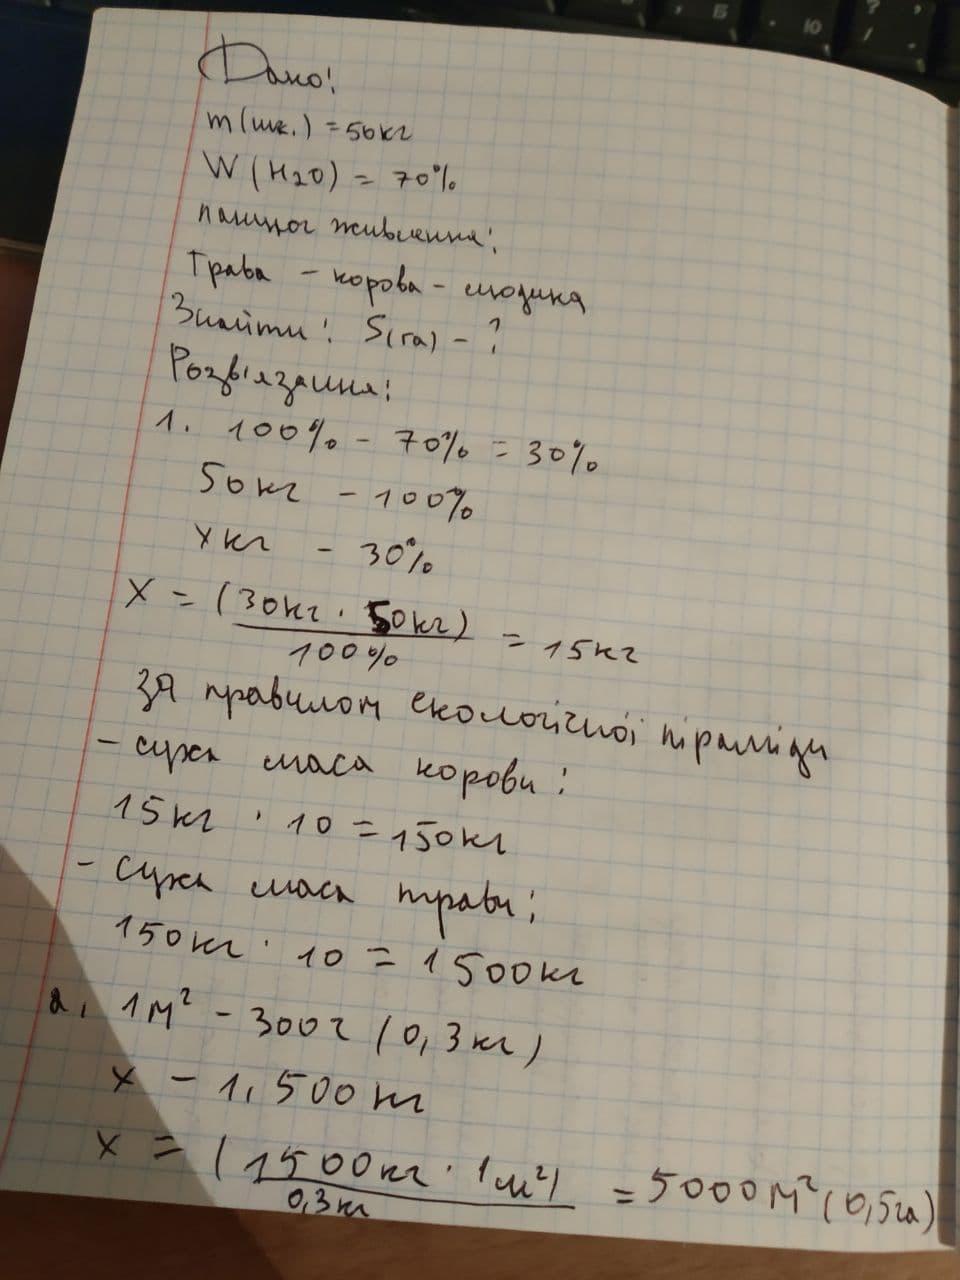 Дано:
m(шк.) = 50кг
W (H2O) = 70%
ланцюг живлення:
Трава - корова - людина
Знайти: S(га) - ?
Розв'язання:
1. 100% - 70% = 30%
50кг - 100%
х кг - 30%
X = (30кг · 50кг) / 100% = 15кг
За правилом екологічної піраміди
- суха маса корови:
15кг · 10 = 150кг
- суха маса трави:
150кг · 10 = 1500кг
2. 1м² - 300г (0,3кг)
х - 1,500кг
х = (1500кг · 1м²) / 0,3кг = 5000м² (0,5га)